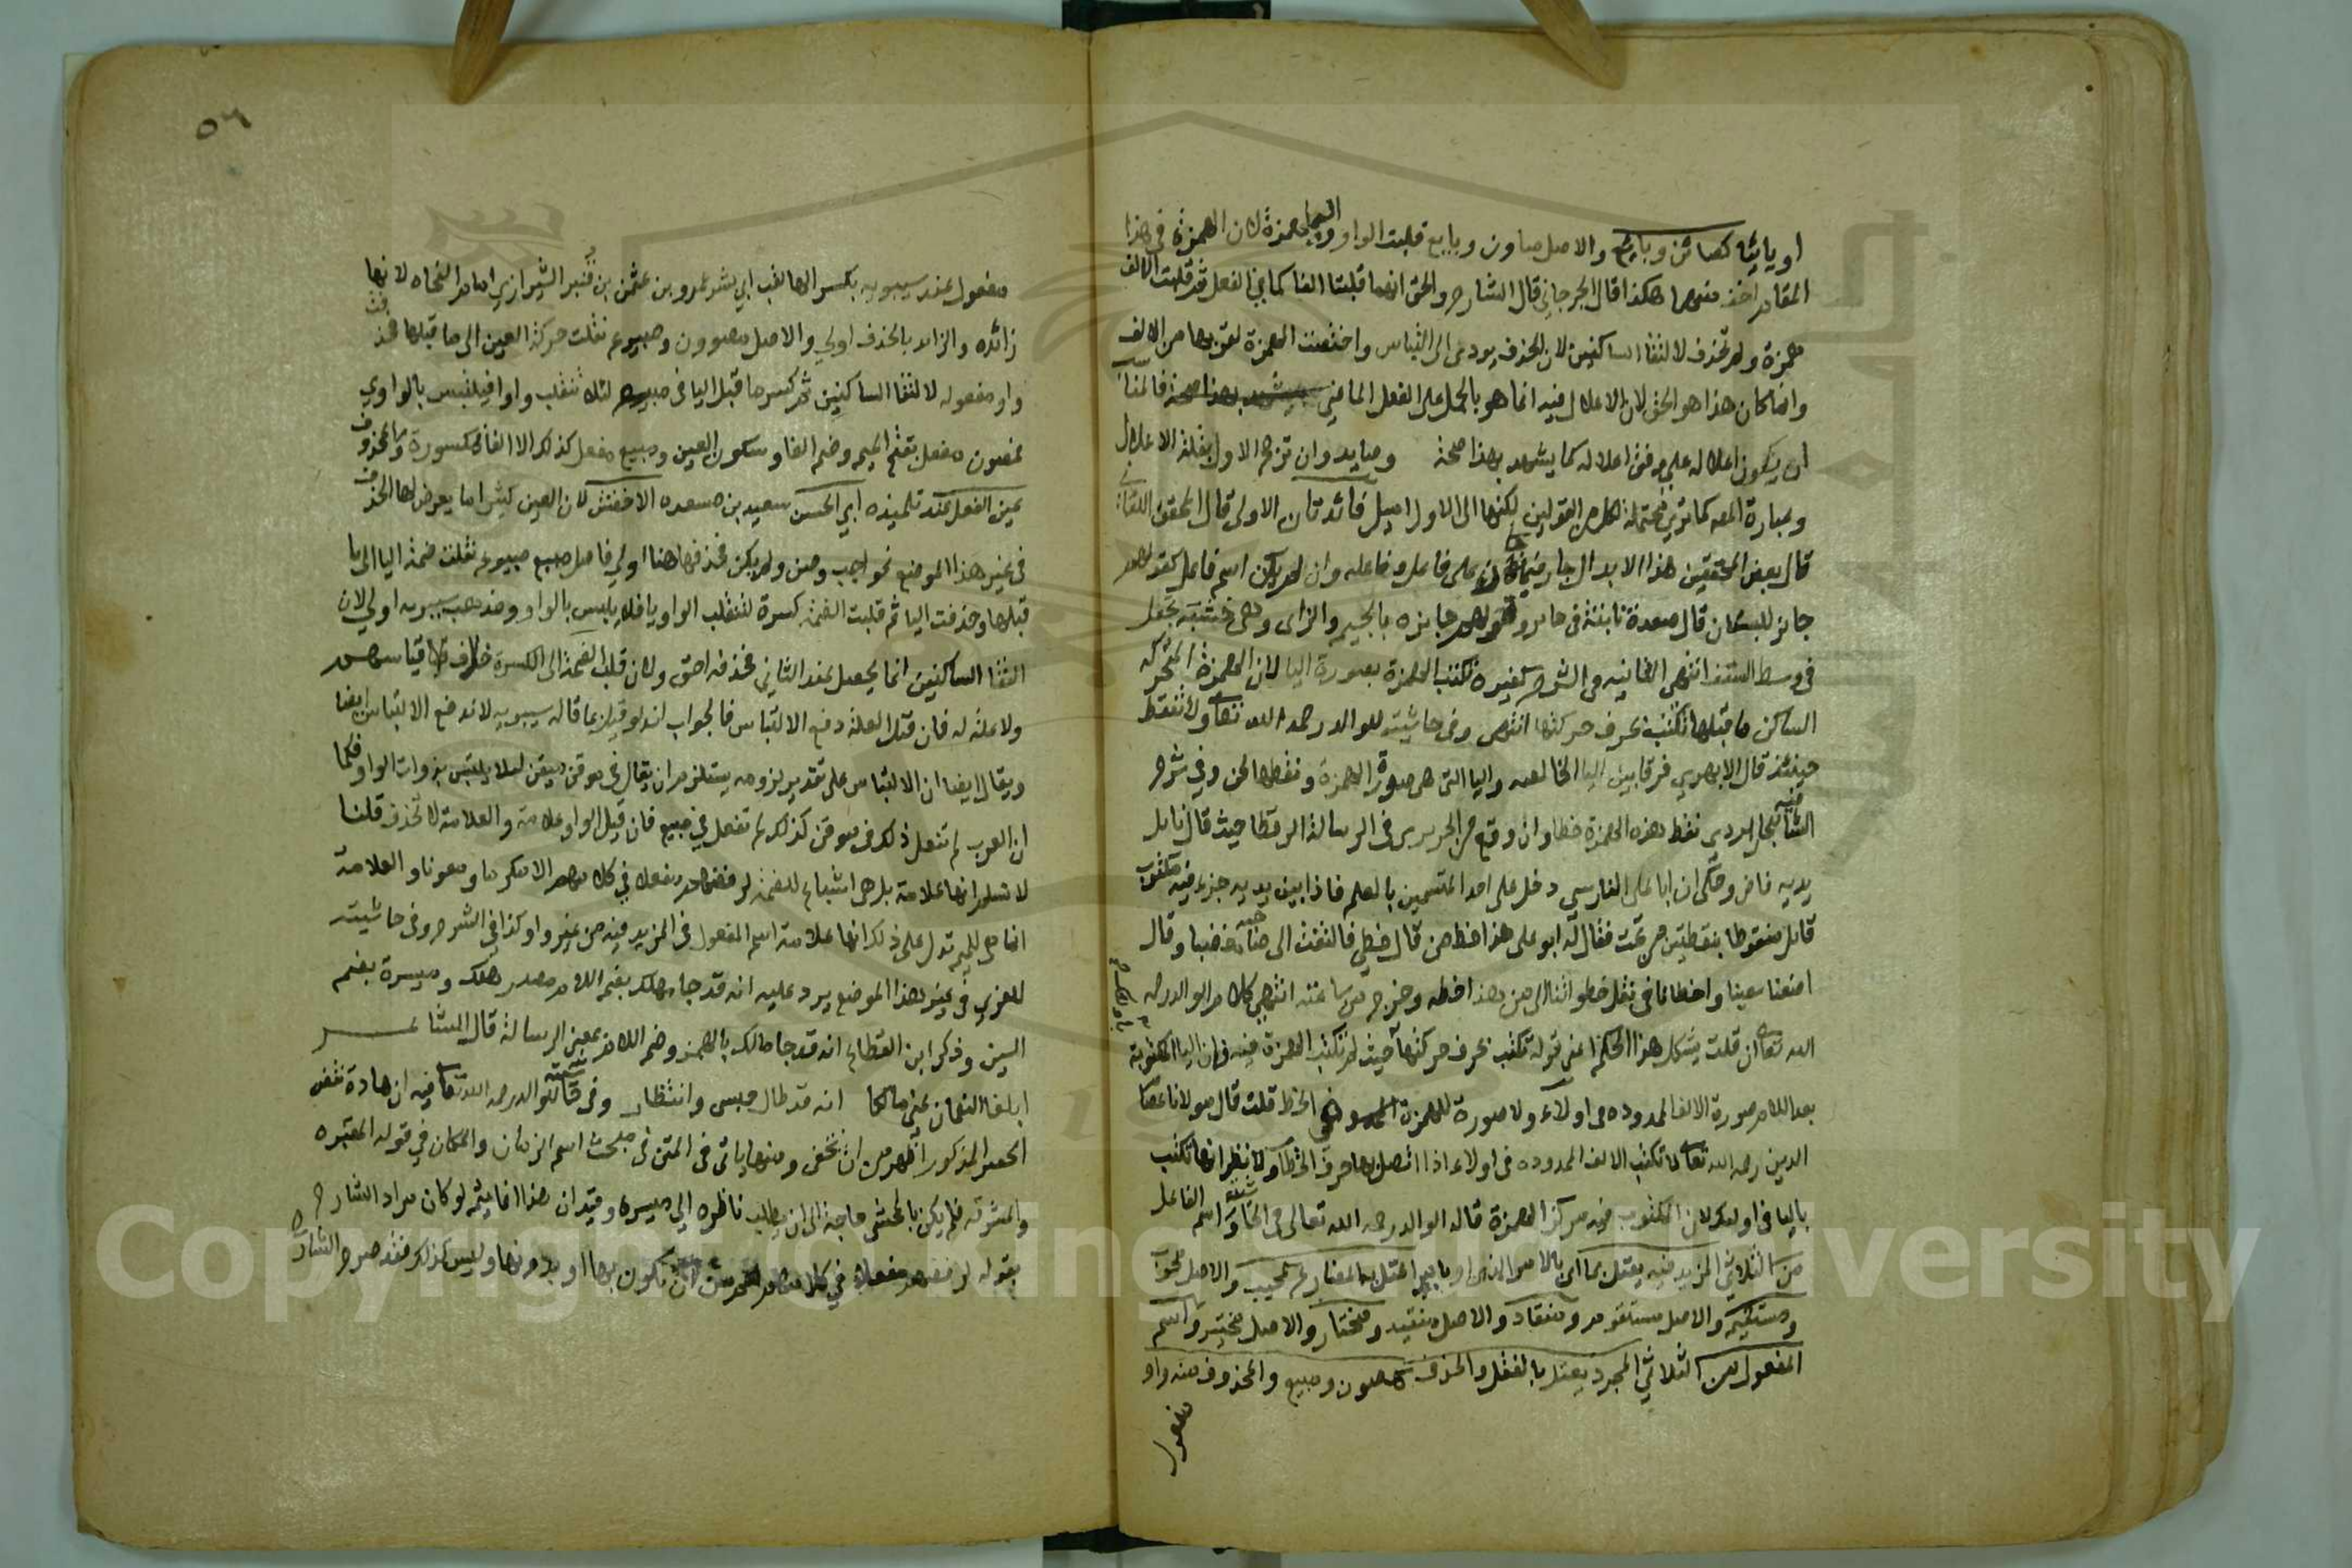 او يائيا كصائن وبايع والاصل صاون وبايع قلبت الواو والياء همزة لان الهمزة في هذا
المقام اخف منهما هكذا قال الجرجاني قال الشارح والحق انهما قلبتا الفا كما في الفعل ثم قلبت الالف
همزة ولم تحذف لالتقا الساكنين لان الحذف يودي الى التباس واختصت الهمزة لقربها من الالف
وانما كان هذا هو الحق لان الاعلال فيه انما هو بالحمل على الفعل الماضي فالمناسب
ان يكون اعلاله على وفق اعلاله كما يشهد بهذا صحة وان ترجح الاول بقلة الاعلال
وعبارة المصـ كما ترى محتملة لكل من القولين لكنها الى الاول اميل فائدتان الاولى قال المحقق اللقاني
قال بعض المحققين هذا الابدال جار فيما كان على فاعل وفاعله وان لم يكن اسم فاعل كقولهم
جائز للبستان قال صعدة نابتة في حائر وقولهم جايزه بالجيم والزاى وهى خشبة تجعل
في وسط السقف انتهى الثانيه في الشرح كغيره تكتب الهمزة بصورة اليا لان الهمزة المتحركه
الساكن ما قبلها تكتب بحرف حركتها انتهى وفي حاشيته للوالد رحمه الله تعا ولا تنقط
حينئذ قال الابهري فرقا بين اليا الخالصه واليا التى هى صورة الهمزة ونقطها لحن وفي شرح
الشافيه للجاربردى نقط هذه الهمزة خطا وان وقع من الحريرى في الرسالة الرقطا حيث قال نايل
يديه فاض وحكى ان ابا على الفارسي دخل على احد المتسمين بالعلم فاذا بين يديه جزء فيه مكتوب
قايل منقوطا بنقطتين من تحت فقال له ابو على هذا خط من قال خطى فالتفت الى صاحبه مغضبا وقال
اضعنا سعينا واخطانا في نقل خطواتنا الى من هذا خطه وخرج من ساعته انتهى كلام الوالد رحمه
الله تعا ان قلت يشكل هذا الحكم اعنى قوله تكتب بحرف حركتها حيث لم تكتب الهمزة فيه فان اليا المكتوبة
بعد اللام صورة الالف الممدوده في اولاء ولا صورة للهمزة في الخط قلت قال مولانا عصام
الدين رحمه الله تعا تكتب الالف الممدوده في اولاء اذا اتصل بها حرف الخطاب ولا نظير انها تكتب
باليا في اولئك لان المكتوب فيه مركز الهمزة قاله الوالد رحمه الله تعالى في واسم الفاعل
من الثلاثى المزيد فيه يعتل بما اى بالامر الذى اعتل به المضارع كمجيب والاصل مجوب
ومستقيم والاصل مستقوم ومنقاد والاصل منقيد ومختار والاصل مختير واسم
المفعول من الثلاثي المجرد يعتل بالنقل والحذف كمصون ومبيع والمحذوف منه واو
مفعول
٥٦
مفعول عند سيبويه بكسر الها لقب ابي بشر عمرو بن عثمن بن قنبر الشيرازي امام النحاه لانها
زائده والزايد بالحذف اولى والاصل مصوون ومبيوع نقلت حركة العين الى ما قبلها فحذفت
واو مفعوله لالتقا الساكنين ثم كسر ما قبل اليا فى مبيع لئلا تنقلب واوا فيلتبس بالواوي
فمصون مفعل بفتح الميم وضم الفا وسكون العين ومبيع مفعل كذلك الا ان الفا مكسورة والمحذوف
عين الفعل عند تلميذه ابي الحسن سعيد بن مسعده الاخفش لان العين كثيرا ما يعرض لها الحذف
في غير هذا الموضع نحو اجب وصن ولم يكن فحذفها هنا اولى فاصل مبيع مبيوع نقلت ضمة اليا الى ما
قبلها وحذفت اليا ثم قلبت الضمة كسرة لتنقلب الواو يا فلا يلتبس بالواو ومذهب سيبويه اولى لان
التقا الساكنين انما يحصل عند الثاني فحذفه احق ولان قلب الضمة الى الكسرة خلاف قياسهم
ولا علة له فان قيل العلة دفع الالتباس فالجواب انه لو قيل بما قاله سيبويه لاندفع الالتباس ايضا
ويقال ايضا ان الالتباس على تقدير لزومه يستلزم ان يقال في موقن ميقن ليلا يلتبس بذوات الواو فكما
ان العرب لم تفعل ذلك في موقن كذلك لم تفعل في مبيع فان قيل الواو علامة والعلامة لا تحذف قلنا
لا نسلم انها علامة بل هى اشباع للضمة لرفضهم مفعلا في كلامهم الا مكرما ومعونا والعلامة
انما هى الميم تدل على ذلك انها علامة اسم المفعول فى المزيد فيه من غير واو كذا في الشرح وفي حاشيته
للغزي في غير هذا الموضع يرد عليه انه قد جا مهلك بضم اللام مصدر هلك وميسرة بضم
السين وذكر ابن القطاع انه قد جا مالك بالهمز وضم اللام بمعنى الرسالة قال الشاعر
ابلغا النعمان عنى مالكا انه قد طال حبسى وانتظار وفي للوالد رحمه الله تعا فيه ان مادة نقض
الحصر المذكور اظهر من ان تخفى ومنها ياتى في المتن في مبحث اسم الزمان والمكان في قوله المقبره
والمشرقه فلم يكن بالمحشى حاجة الى ان يطلب ناظره الى ميسره وقيد ان هذا انما يتم لو كان مراد الشارح
بقوله لرفضهم مفعلا في كلامهم ان تكون بها او بدونها وليس كذلك فقد صرح الشارح